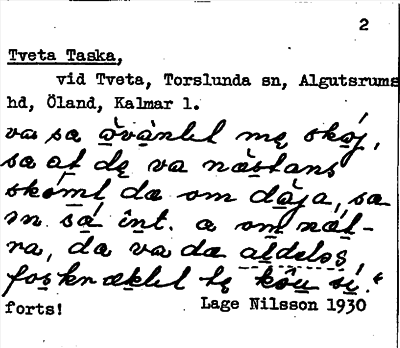 2
Tveta Taska,
vid Tveta, Torslunda sn, Algutsrums
hd, Öland, Kalmar l.
va sa åvànlet mę skȯj,
sa at dę va næstans
skömt da om dåja, sa
sn sa int. a om næt-
ra, da va da aldeles
foskræklet tę köu si."
forts!
Lage Nilsson 1930